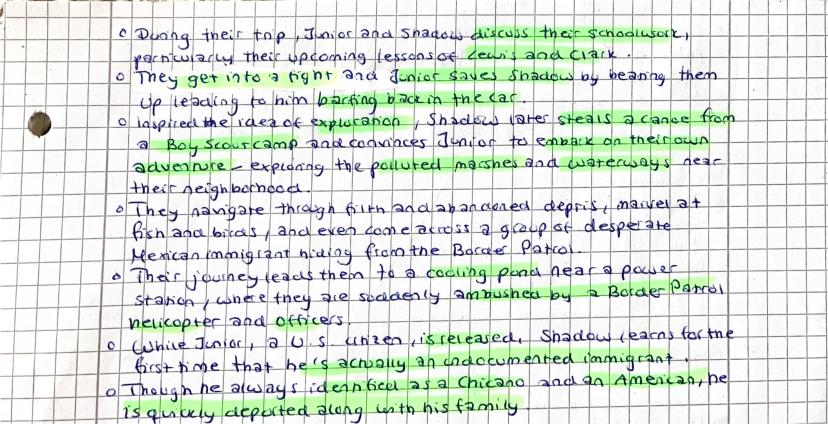 o During their trip, Junior and Shadow discuss their schoolwork,
particularly their upcoming lessons of Lewis and Clark.
o They get into a fight and Junior saves Shadow by beating them
up leading to him barfing back in the car.
o inspired the idea of exploration, Shadow later steals a canoe from
a Boy Scout camp and convinces Junior to embark on their own
adventure - exploring the polluted marshes and waterways near
their neighborhood.
o They navigate through filth and abandoned depris, marvel at
fish and birds, and even come across a group of desperate
Mexican immigrant hiding from the Border Patrol.
o Their journey leads them to a cooling pond near a power
station, where they are suddenly ambushed by a Border Patrol
helicopter and officers.
o While Junior, a U.S. citizen, is released, Shadow learns for the
first time that he is actually an undocumented immigrant.
o Though he always identified as a Chicano and an American, he
is quickly deported along with his family.